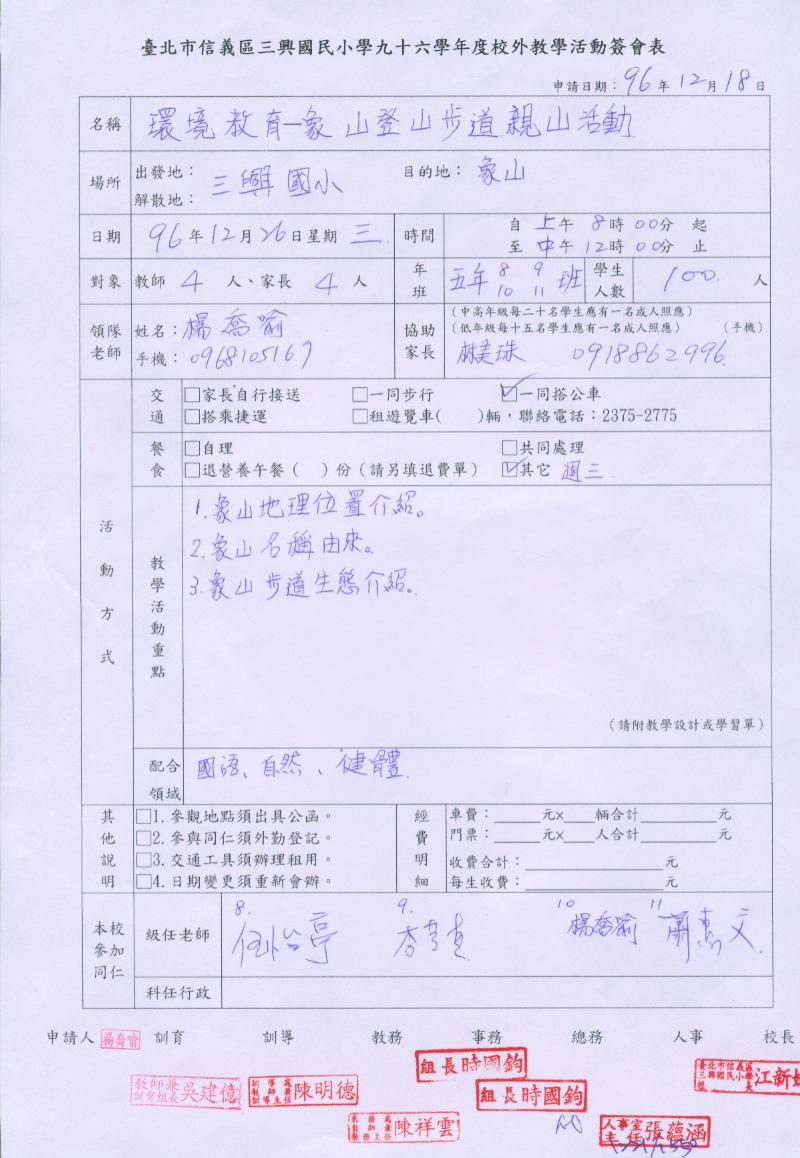 臺北市信義區三興國民小學九十六學年度校外教學活動簽會表
申請日期：96年12月18日
名稱 環境教育—象山登山步道親山活動
場所 出發地： 解散地： 三興國小 目的地： 象山
日期 96年12月26日星期三 時間 自上午8時00分起 至中午12時00分止
對象 教師4人、家長4人 年班 五年8 9 10 11班 學生人數 100人
領隊老師 姓名：楊喬喻 手機：0968105167
協助家長 (中高年級每二十名學生應有一名成人照應)
(低年級每十五名學生應有一名成人照應) (手機)
林美珠 0918862996
活動方式
交通 □家長自行接送 □一同步行 ☑一同搭公車
□搭乘捷運 □租遊覽車( )輛，聯絡電話：2375-2775
餐食 □自理 □共同處理
□退營養午餐( )份(請另填退費單) ☑其它 週三
教學活動重點
1.象山地理位置介紹。
2.象山名稱由來。
3.象山步道生態介紹。
(請附教學設計或學習單)
配合領域 國語、自然、健體
其他說明
□1.參觀地點須出具公函。
□2.參與同仁須外勤登記。
□3.交通工具須辦理租用。
□4.日期變更須重新會辦。
經費明細
車費：____元x____輛合計____元
門票：____元x____人合計____元
收費合計：____元
每生收費：____元
本校參加同仁
級任老師 8. 9. 10 楊喬喻 11 蕭惠文
科任行政
申請人 楊喬喻 訓育 訓導 教務 事務 總務 人事 校長
組長時國鈞
教師兼訓育組長吳建億
訓導處教師兼訓導主任陳明德
組長時國鈞
臺北市信義區三興國民小學校長江新
教務處教師兼教務主任陳祥雲
人事室主任張蘊涵